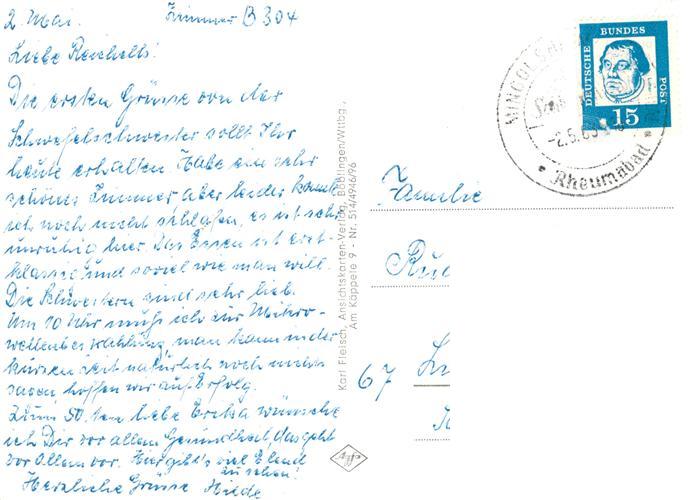 2. Mai. Zimmer B 304
Liebe Reichelts!
Die ersten Grüsse von der
Schwefelschwester sollt Ihr
heute erhalten. Habe ein sehr
schönes Zimmer aber leider konnte
ich noch nicht schlafen, es ist sehr
unruhig hier. Das Essen ist erst-
klassig und soviel wie man will.
Die Schwestern sind sehr lieb.
Um 10 Uhr muß ich zur Mikro-
wellenbestrahlung, man kann in der
kurzen Zeit natürlich noch nichts
sagen, hoffen wir auf Erfolg.
Zum 50. ten liebe Erika wünsche
ich Dir vor allem Gesundheit, das geht
vor Allem vor. Hier gibt's viel Elend
zu sehen!
Herzliche Grüsse Hilde
Karl Fleisch, Ansichtskarten-Verlag, Böblingen/Wttbg.,
Am Käppele 9 - Nr. 514/4946/96
Agfa
DEUTSCHE BUNDES POST
15
-2.5.63
Rheumabad
Familie
67